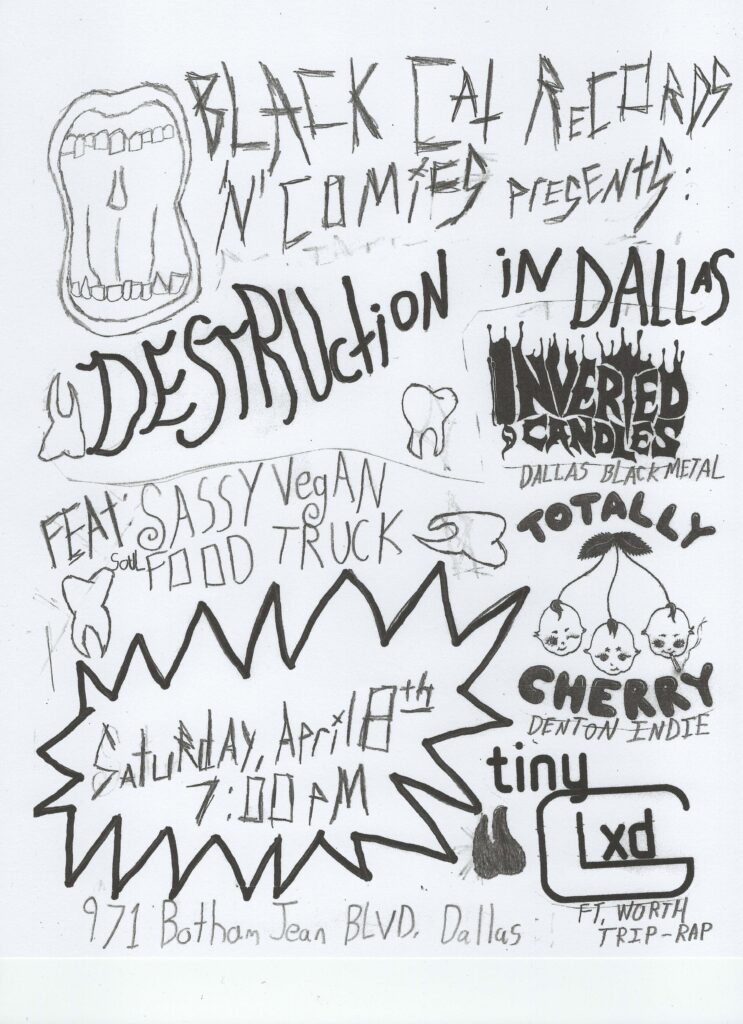 BLACK CAT RECORDS
'N' COMIES PRESENTS:
DESTRUCTION
IN DALLAS
INVERTED
CANDLES
DALLAS BLACK METAL
FEAT: SASSY VEGAN
SOUL FOOD TRUCK
TOTALLY
CHERRY
DENTON INDIE
SATURDAY, APRIL 8th
7:00 PM
tiny
Lxd
FT. WORTH
TRIP-RAP
971 Botham Jean BLVD. Dallas